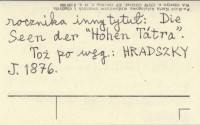 rocznika inny tytuł: Die
Seen der "Hohen Tátra".
Toż po węg. HRADSZKY
J. 1876.